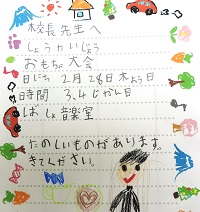 校長先生へ
しょうたいじょう
おもちゃ大会
日にち2月28日木よう日
時間 3、4じかん目
ばしょ音楽室
たのしいものがあります。
きてください。